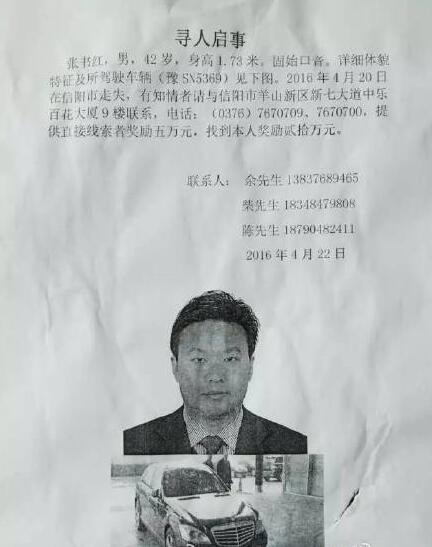 寻人启事
张书红，男，42岁，身高1.73米。固始口音。详细体貌
特征及所驾驶车辆（豫SN5369）见下图。2016年4月20日
在信阳市走失，有知情者请与信阳市羊山新区新七大道中乐
百花大厦9楼联系，电话：（0376）7670709、7670700，提
供直接线索者奖励五万元，找到本人奖励贰拾万元。
联系人：余先生13837689465
柴先生18348479808
陈先生18790482411
2016年4月22日